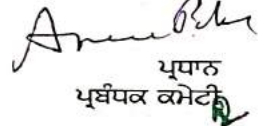 ਪ੍ਰਧਾਨ
ਪ੍ਰਬੰਧਕ ਕਮੇਟੀ